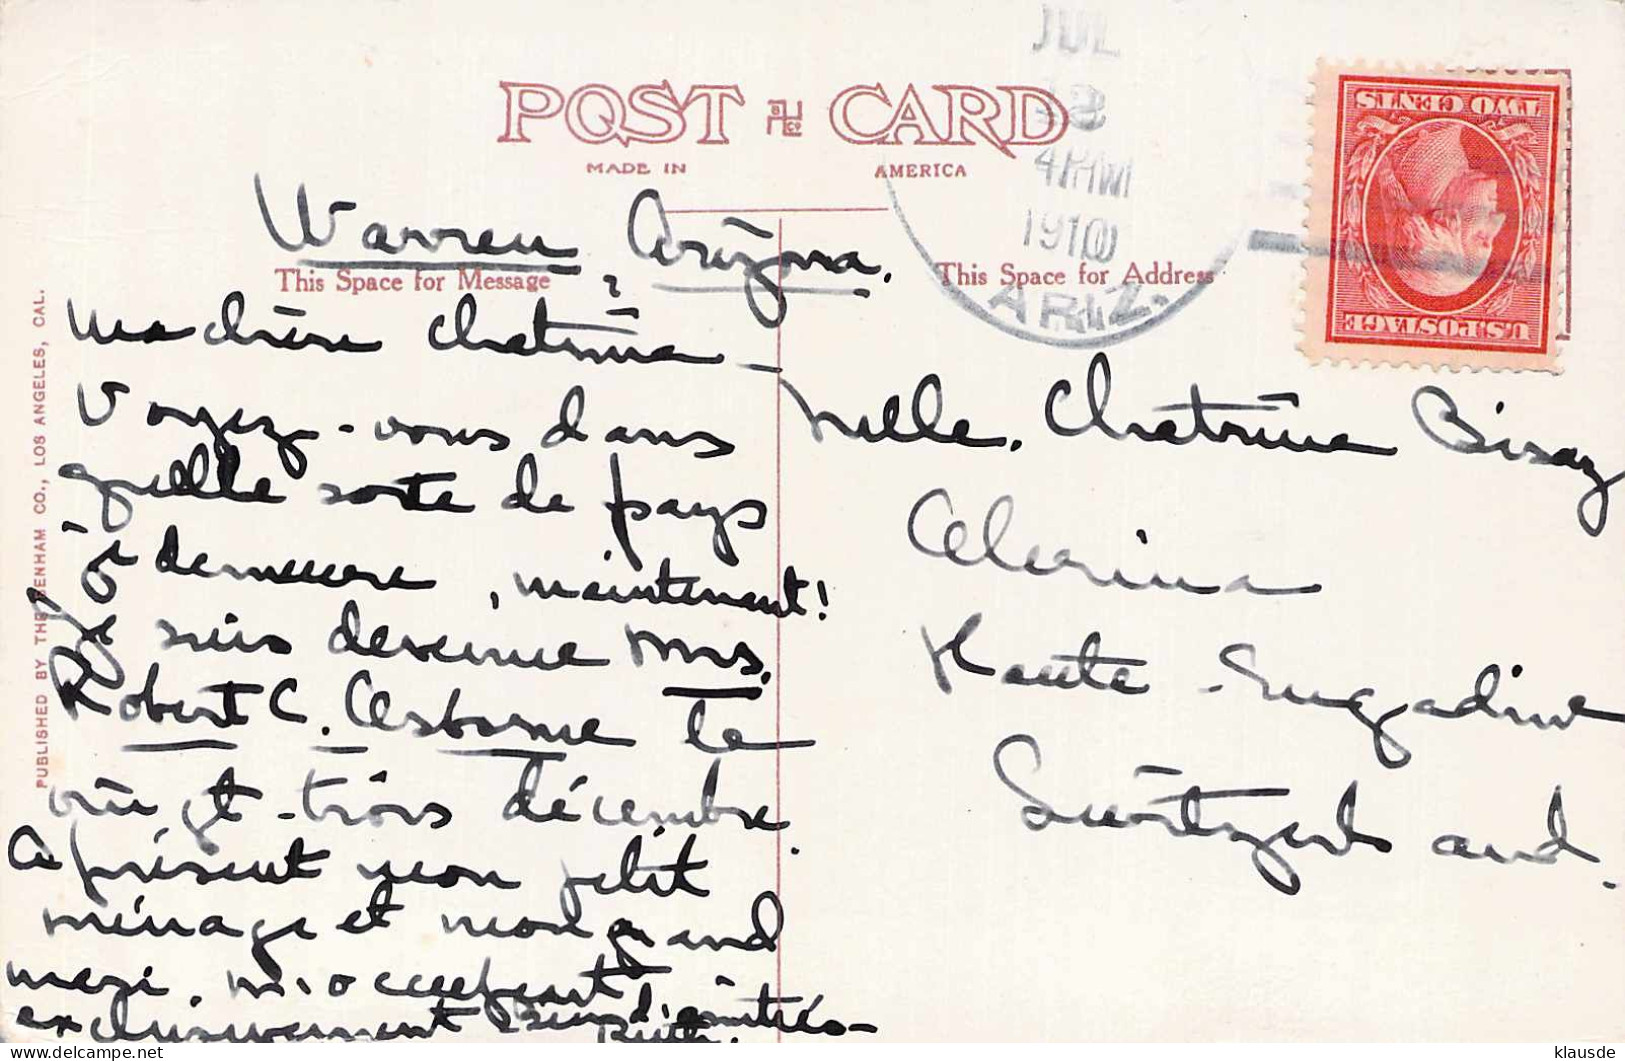 POST CARD
MADE IN AMERICA
JUL
4 PM
1910
ARIZ.
TWO CENTS
U.S. POSTAGE
Warren, Arizona.
This Space for Message
This Space for Address
Ma chère Chatrina –
Voyez-vous dans
quelle sorte de pays
je demeure, maintenant!
Je suis devenue Mrs.
Robert C. Osborne le
vingt-trois décembre.
A présent mon petit
ménage et mon grand
mari, m'occupent
exclusivement Bien d'amitiés –
Ruth.
Mlle. Chatrina Bisaz
Celerina
Haute-Engadine
Switzerland.
PUBLISHED BY THE BENHAM CO., LOS ANGELES, CAL.
klausde